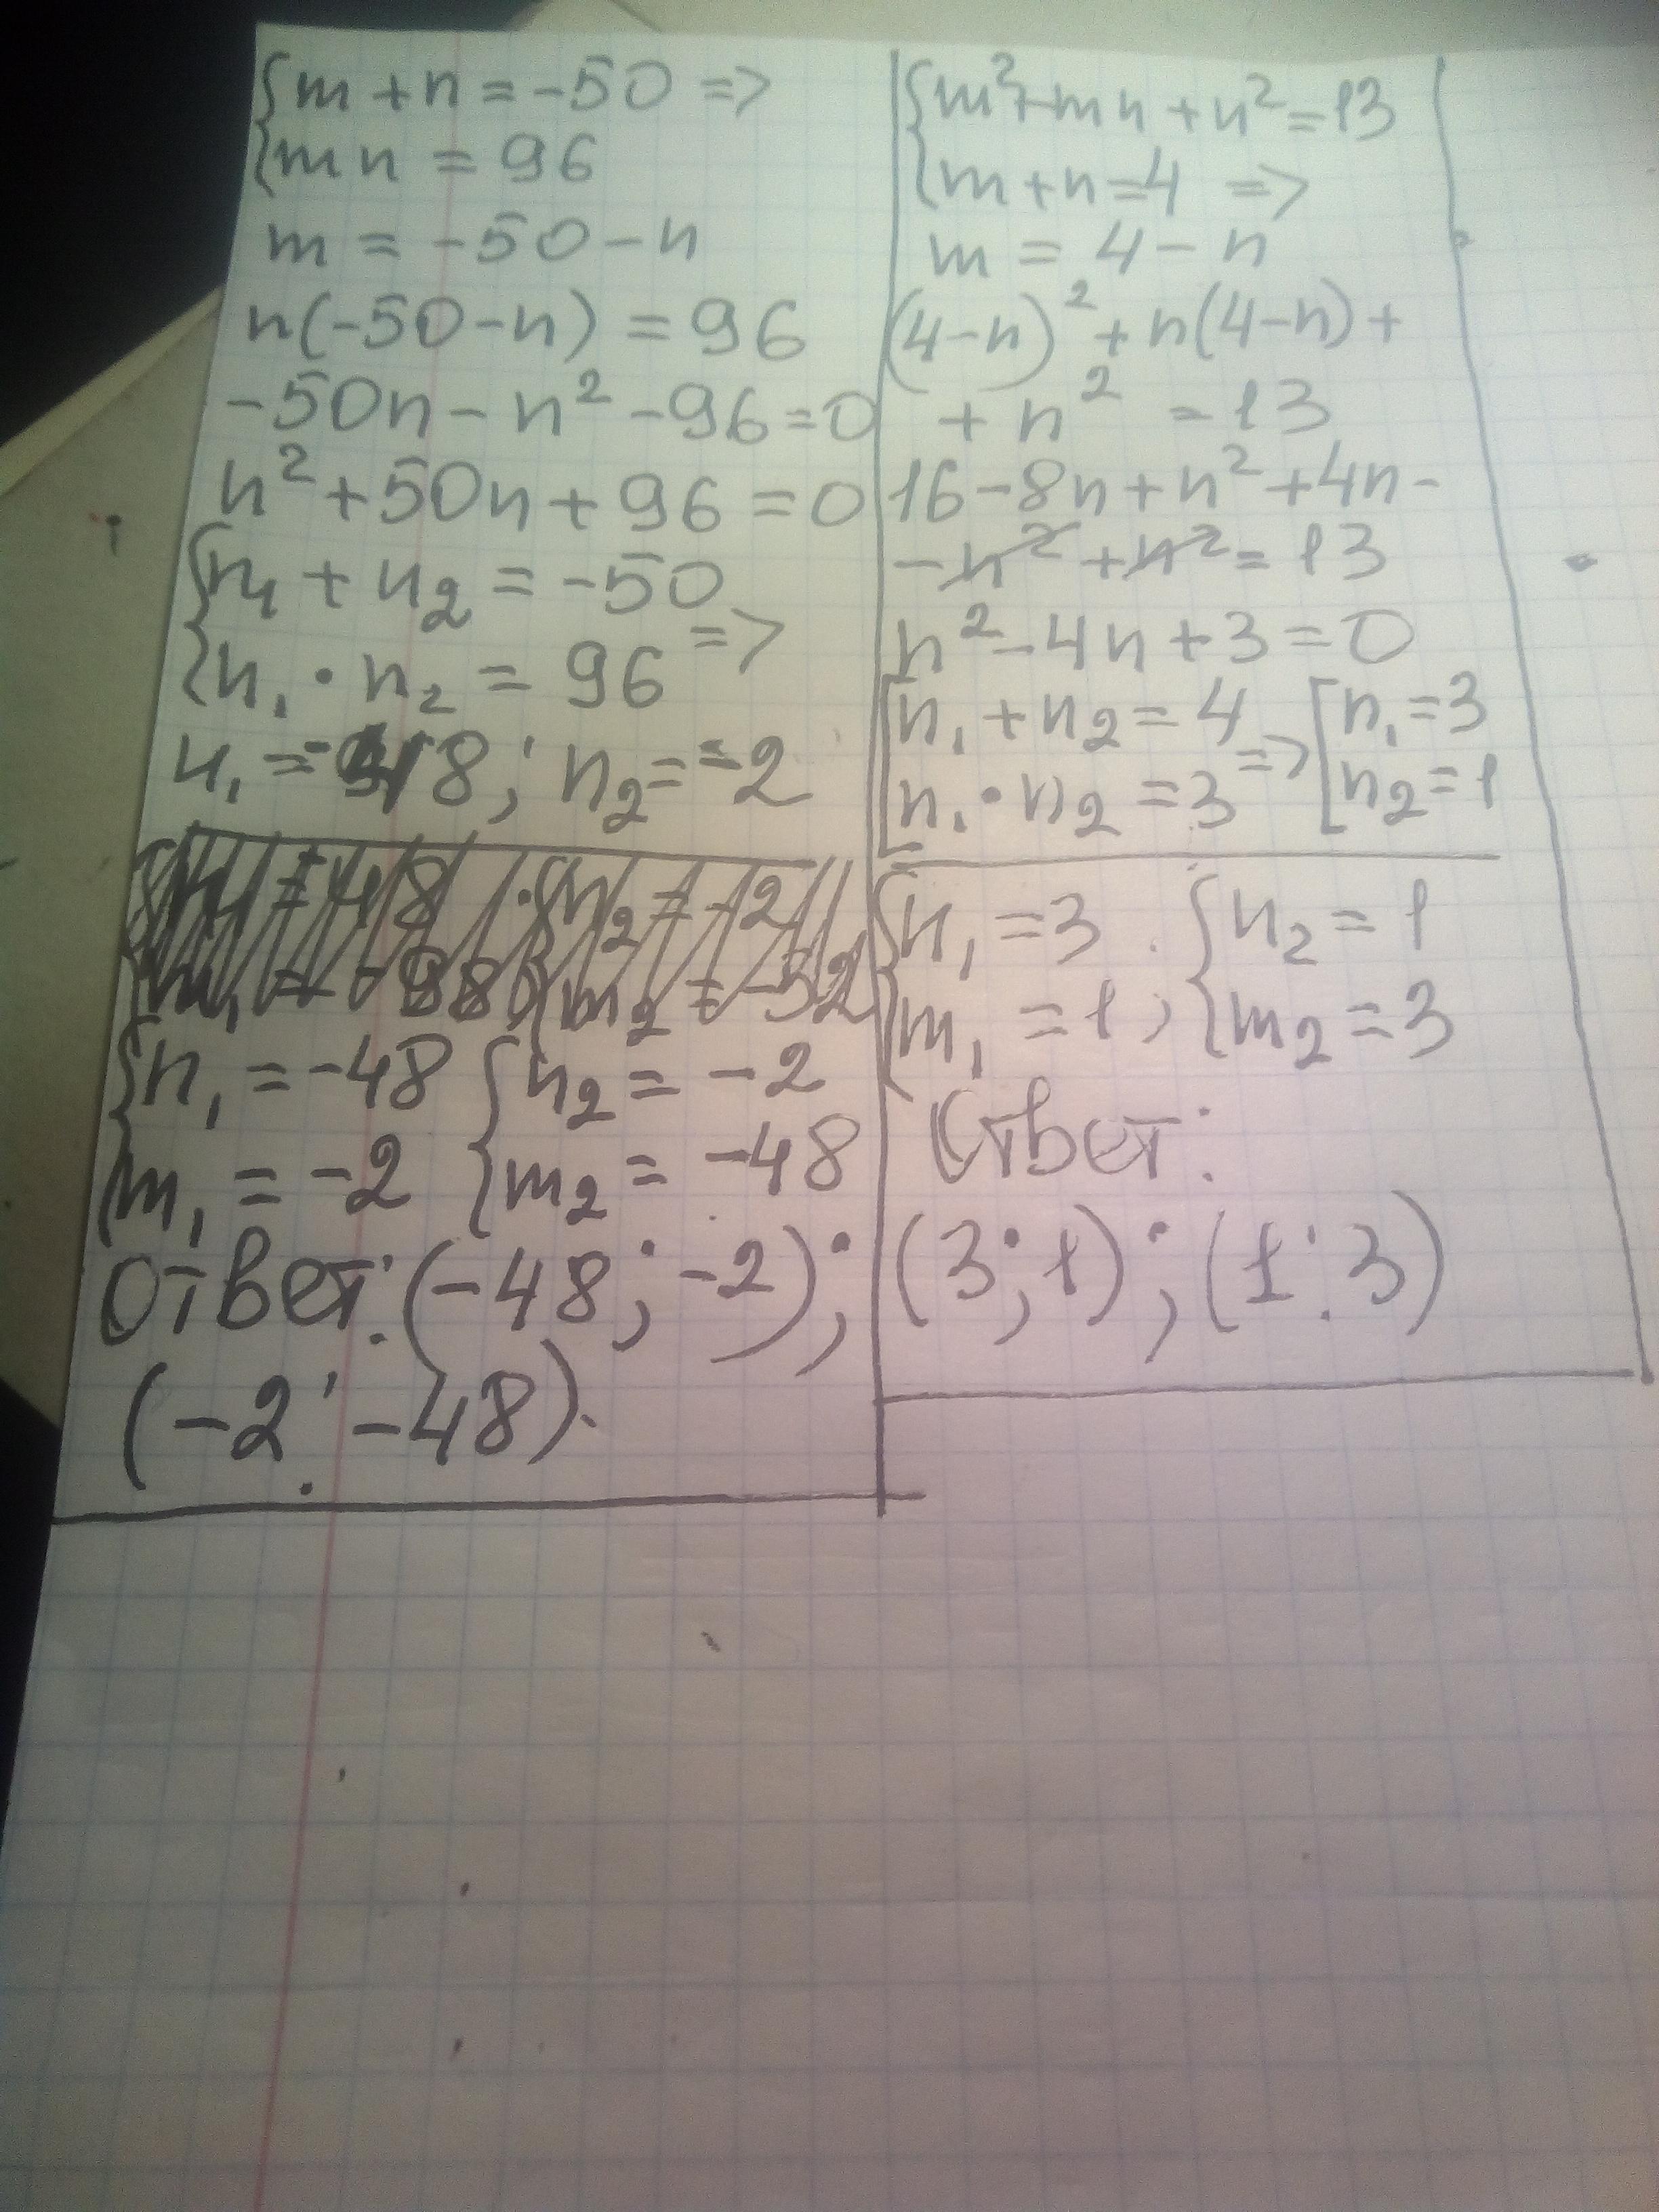 {m + n = -50 =>
{mn = 96
m = -50 - n
n(-50-n) = 96
-50n - n² - 96 = 0
n² + 50n + 96 = 0
{n₁ + n₂ = -50
{n₁ · n₂ = 96 =>
n₁ = -48; n₂ = -2
{n₁ = -48 {n₂ = -2
{m₁ = -2 {m₂ = -48
Ответ: (-48; -2);
(-2; -48).
{m² + mn + n² = 13
{m + n = 4 =>
m = 4 - n
(4-n)² + n(4-n) +
+ n² = 13
16 - 8n + n² + 4n -
- n² + n² = 13
n² - 4n + 3 = 0
[n₁ + n₂ = 4 => [n₁ = 3
[n₁ · n₂ = 3 [n₂ = 1
{n₁ = 3 ; {n₂ = 1
{m₁ = 1 {m₂ = 3
Ответ:
(3; 1); (1; 3)